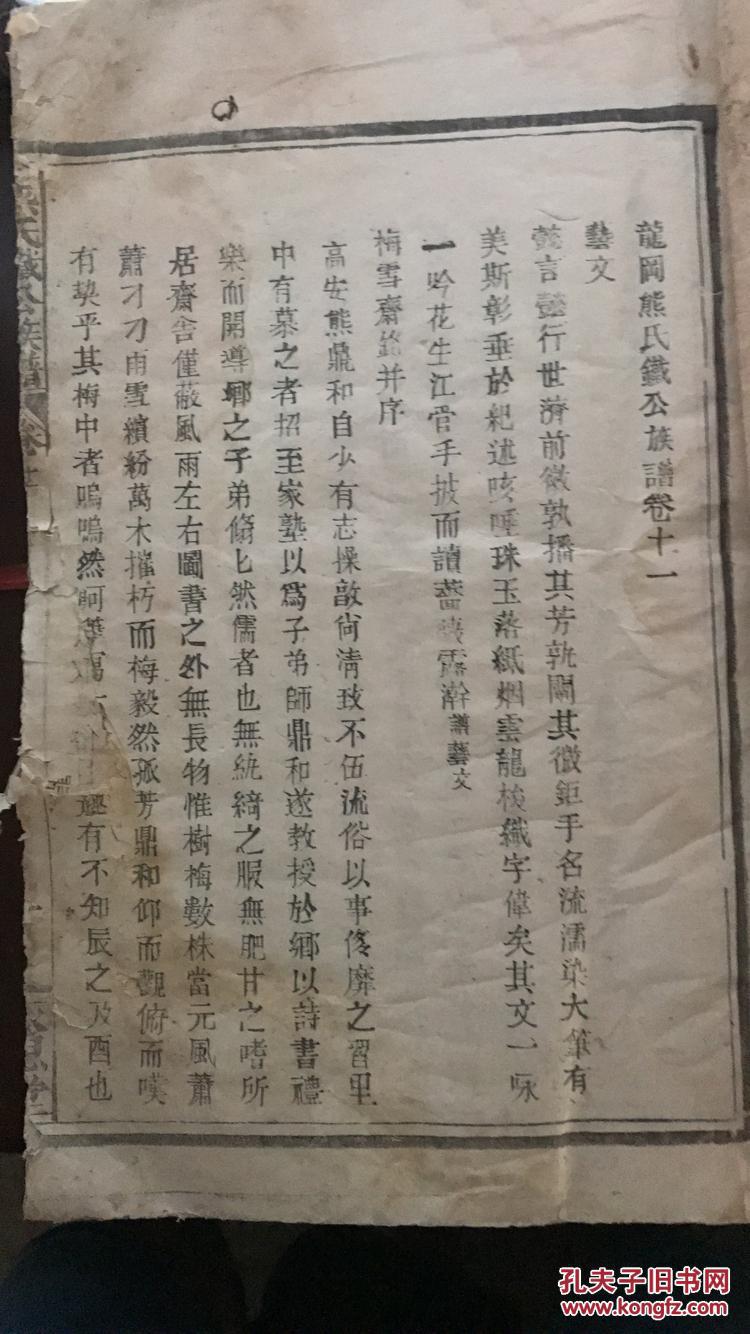 龍岡熊氏鐵公族譜卷十一
藝文
懿言懿行世濟前徽孰播其芳孰闡其微鉅手名流濡染大筆有
美斯彰垂於紀述咳唾珠玉落紙烟雲龍梭織字偉矣其文一咏
一吟花生江管手披而讀薔薇露澣譜藝文
梅雪齋銘并序
高安熊鼎和自少有志操敦尙淸致不伍流俗以事侈靡之習里
中有慕之者招至家塾以爲子弟師鼎和遂教授於鄉以詩書禮
樂而開導鄉之子弟脩匕然儒者也無紈綺之服無肥甘之嗜所
居齋舍僅蔽風雨左右圖書之外無長物惟樹梅數株當元風蕭
蕭刁刁雨雪繽紛萬木摧朽而梅毅然孤芳鼎和仰而觀俯而嘆
有契乎其梅中者嗚嗚然呵筆寫趣有不知辰之及酉也
熊氏鐵公族譜
卷十一
孔夫子旧书网
KONGFZ.COM